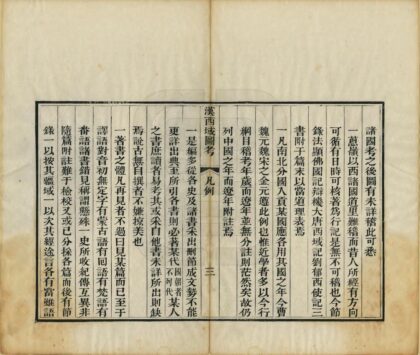 諸國考之後圖有未詳稽此可悉
一葱嶺以西諸國道里難稽而昔人所經有方向
可循有日時可核著為行記是無不可稿也今節
錄法顯佛國記辯機大唐西域記劉郁西使記三
書附于篇末以富道理表焉
一凡南北分國人貢某國應各用其國之年今曹
魏元魏宋之金元遵此例也惟近學者多以今行
綱目稽年歲而遼年並無分註則茫然矣故仍
列中國之年而遼年附註焉
漢西域圖考
凡例
三
一是編多從各史及諸書采出刪節成文勢不能
更詳出典至所引各書則必著某代某人
之書庶讀者易考其或采自他書未詳所出則缺
焉訛古無自撰者不嫌按美也
一著書之體凡再見者不過曰見某篇而已至于
譯語對音初無定字有蒙古語有回語有梵語有
番語諸書錯見稱謂懸殊一史所收紀傳互異非
隨篇附註難于檢校又或已分採各篇而後有節
錄一以按其疆域一以次其經途言各有當雖語